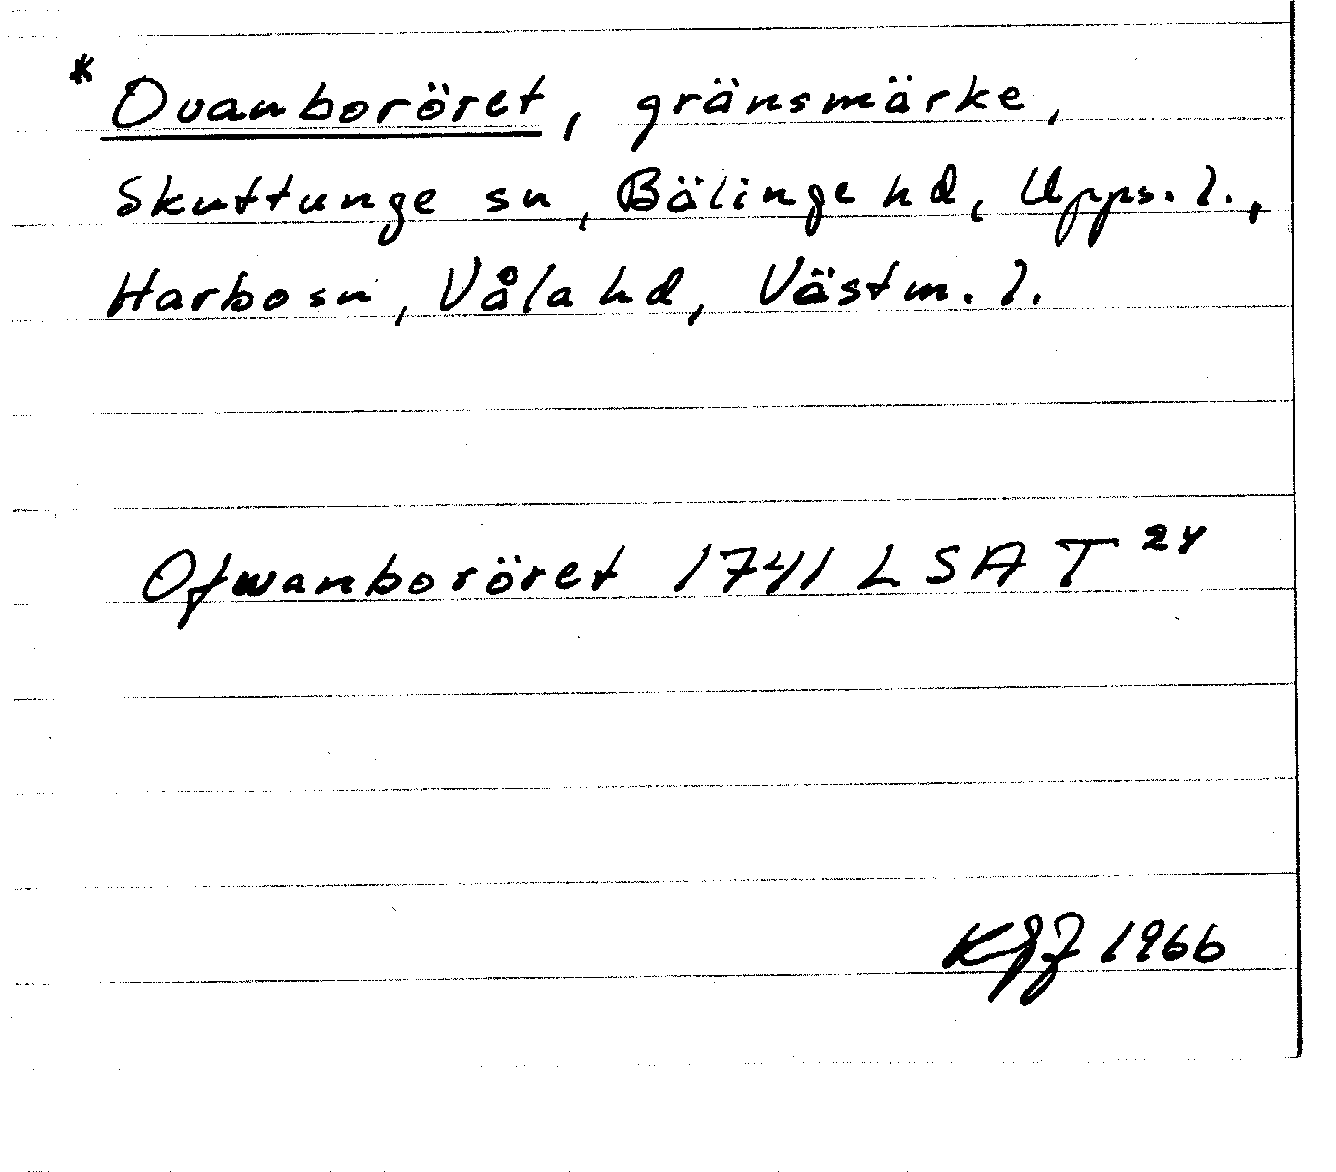 * Ovanboröret, gränsmärke,
Skuttunge sn, Bälinge hd, Upps. l.,
Harbo sn, Våla hd, Västm. l.
Ofwanboröret 1741 LSA T 24
1966